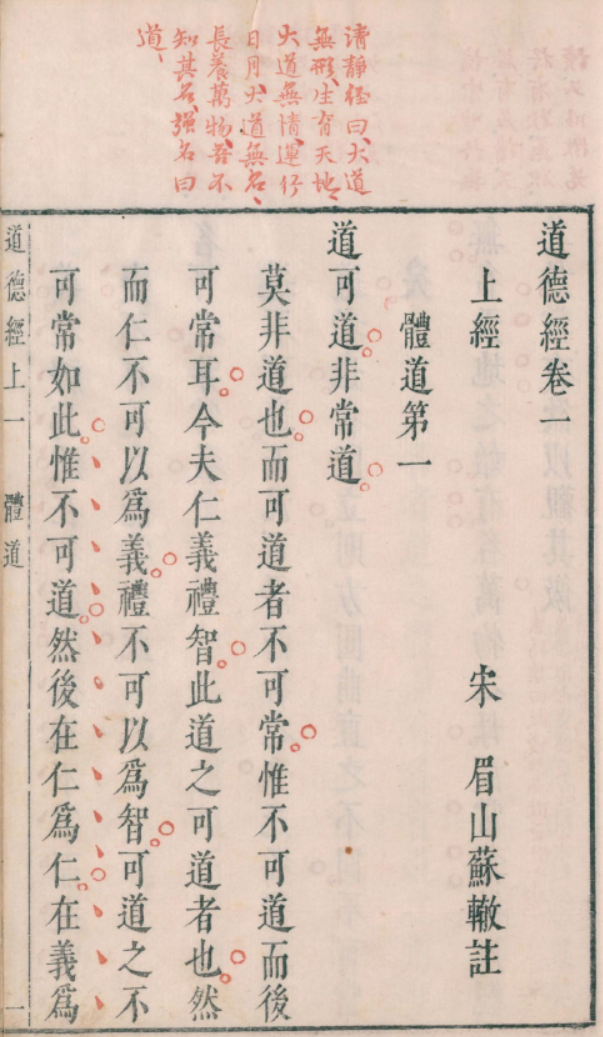 清靜經曰大道
無形生育天地
大道無情運行
日月大道無名
長養萬物吾不
知其名强名曰
道
道德經卷一
上經 宋 眉山蘇轍註
體道第一
道可道非常道
莫非道也而可道者不可常惟不可道而後
可常耳今夫仁義禮智此道之可道者也然
而仁不可以爲義禮不可以爲智可道之不
可常如此惟不可道然後在仁爲仁在義爲
道德經上一 體道 一